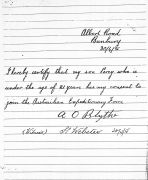 Albert Road
Bunbury
30/6/15
I hereby certify that my son Percy who is
under the age of 21 years has my consent to
join the Australian Expeditionary Force
A O Blythe
(Witness) Webster 30/6/15